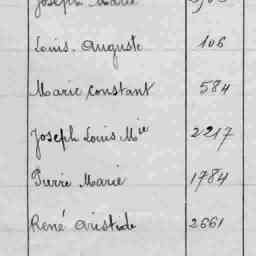 Joseph Marie
Louis. Auguste 106
Marie Constant 584
Joseph Louis Mie 2217
Pierre Marie 1784
René Aristide 2661